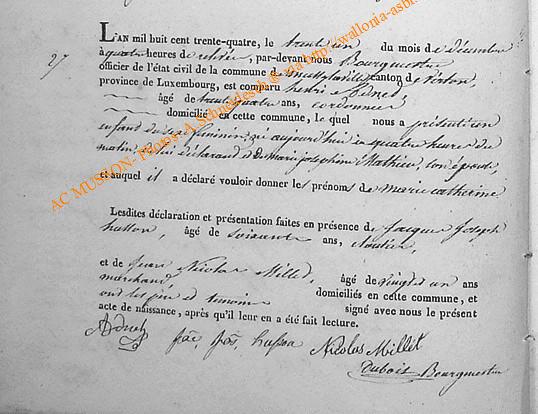 27
L'AN mil huit cent trente-quatre, le trente un du mois de décembre
à quatre heures de relevée, par-devant nous Bourgmestre
officier de l'état civil de la commune de canton de Virton,
province de Luxembourg, est comparu henri Adnet
âgé de trente quatre ans, cordonnier
domicilié en cette commune, le quel nous a présenté un
enfant du sexe féminin, né aujourd'hui à quatre heures du
matin, de lui déclarant et de marie josephine Mathieu, son épouse,
et auquel il a déclaré vouloir donner les prénoms de marie catherine
Lesdites déclaration et présentation faites en présence de Jacques Joseph
husson, âgé de soixante ans, cloutier,
et de Jean Nicolas Millet, âgé de vingt un ans
marchand, domiciliés en cette commune, et
ont les père et temoins signé avec nous le présent
acte de naissance, après qu'il leur en a été fait lecture.
Adnet husson Nicolas Millet
Dubois Bourgmestre
AC MUSSON- Photos A.Schneidesch @ http://wallonia-asbl